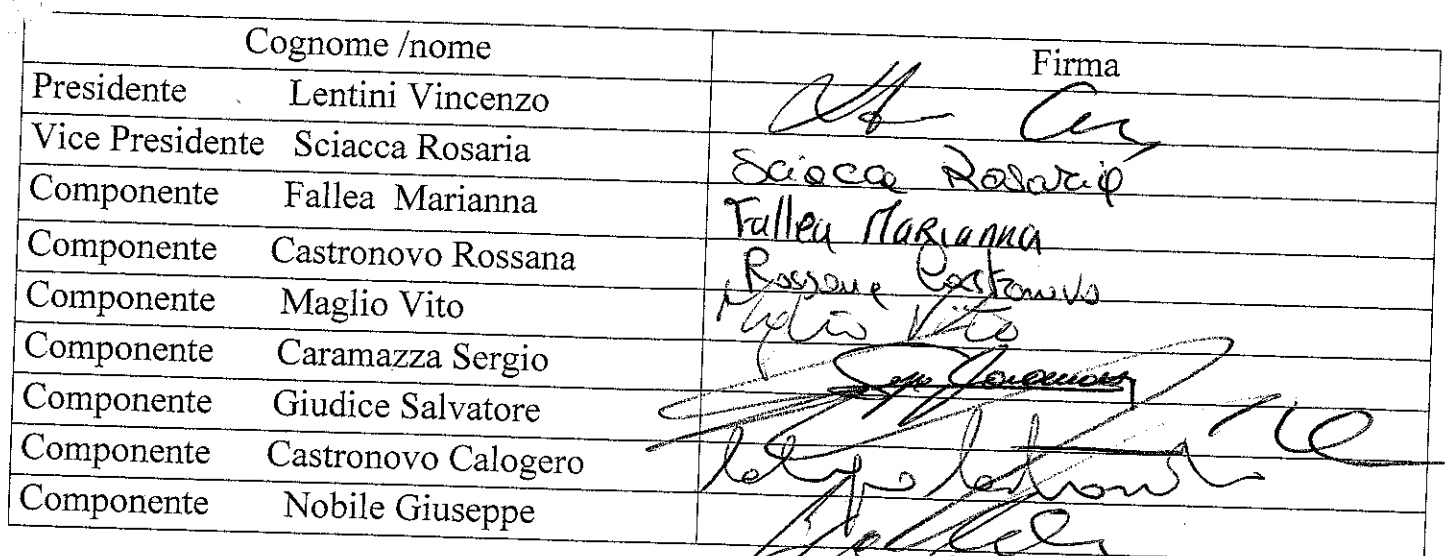 Cognome /nome Firma
Presidente Lentini Vincenzo
Vice Presidente Sciacca Rosaria Sciacca Rosaria
Componente Fallea Marianna Fallea Marianna
Componente Castronovo Rossana Rossana Castronovo
Componente Maglio Vito Maglio Vito
Componente Caramazza Sergio
Componente Giudice Salvatore
Componente Castronovo Calogero Calogero Castronovo
Componente Nobile Giuseppe